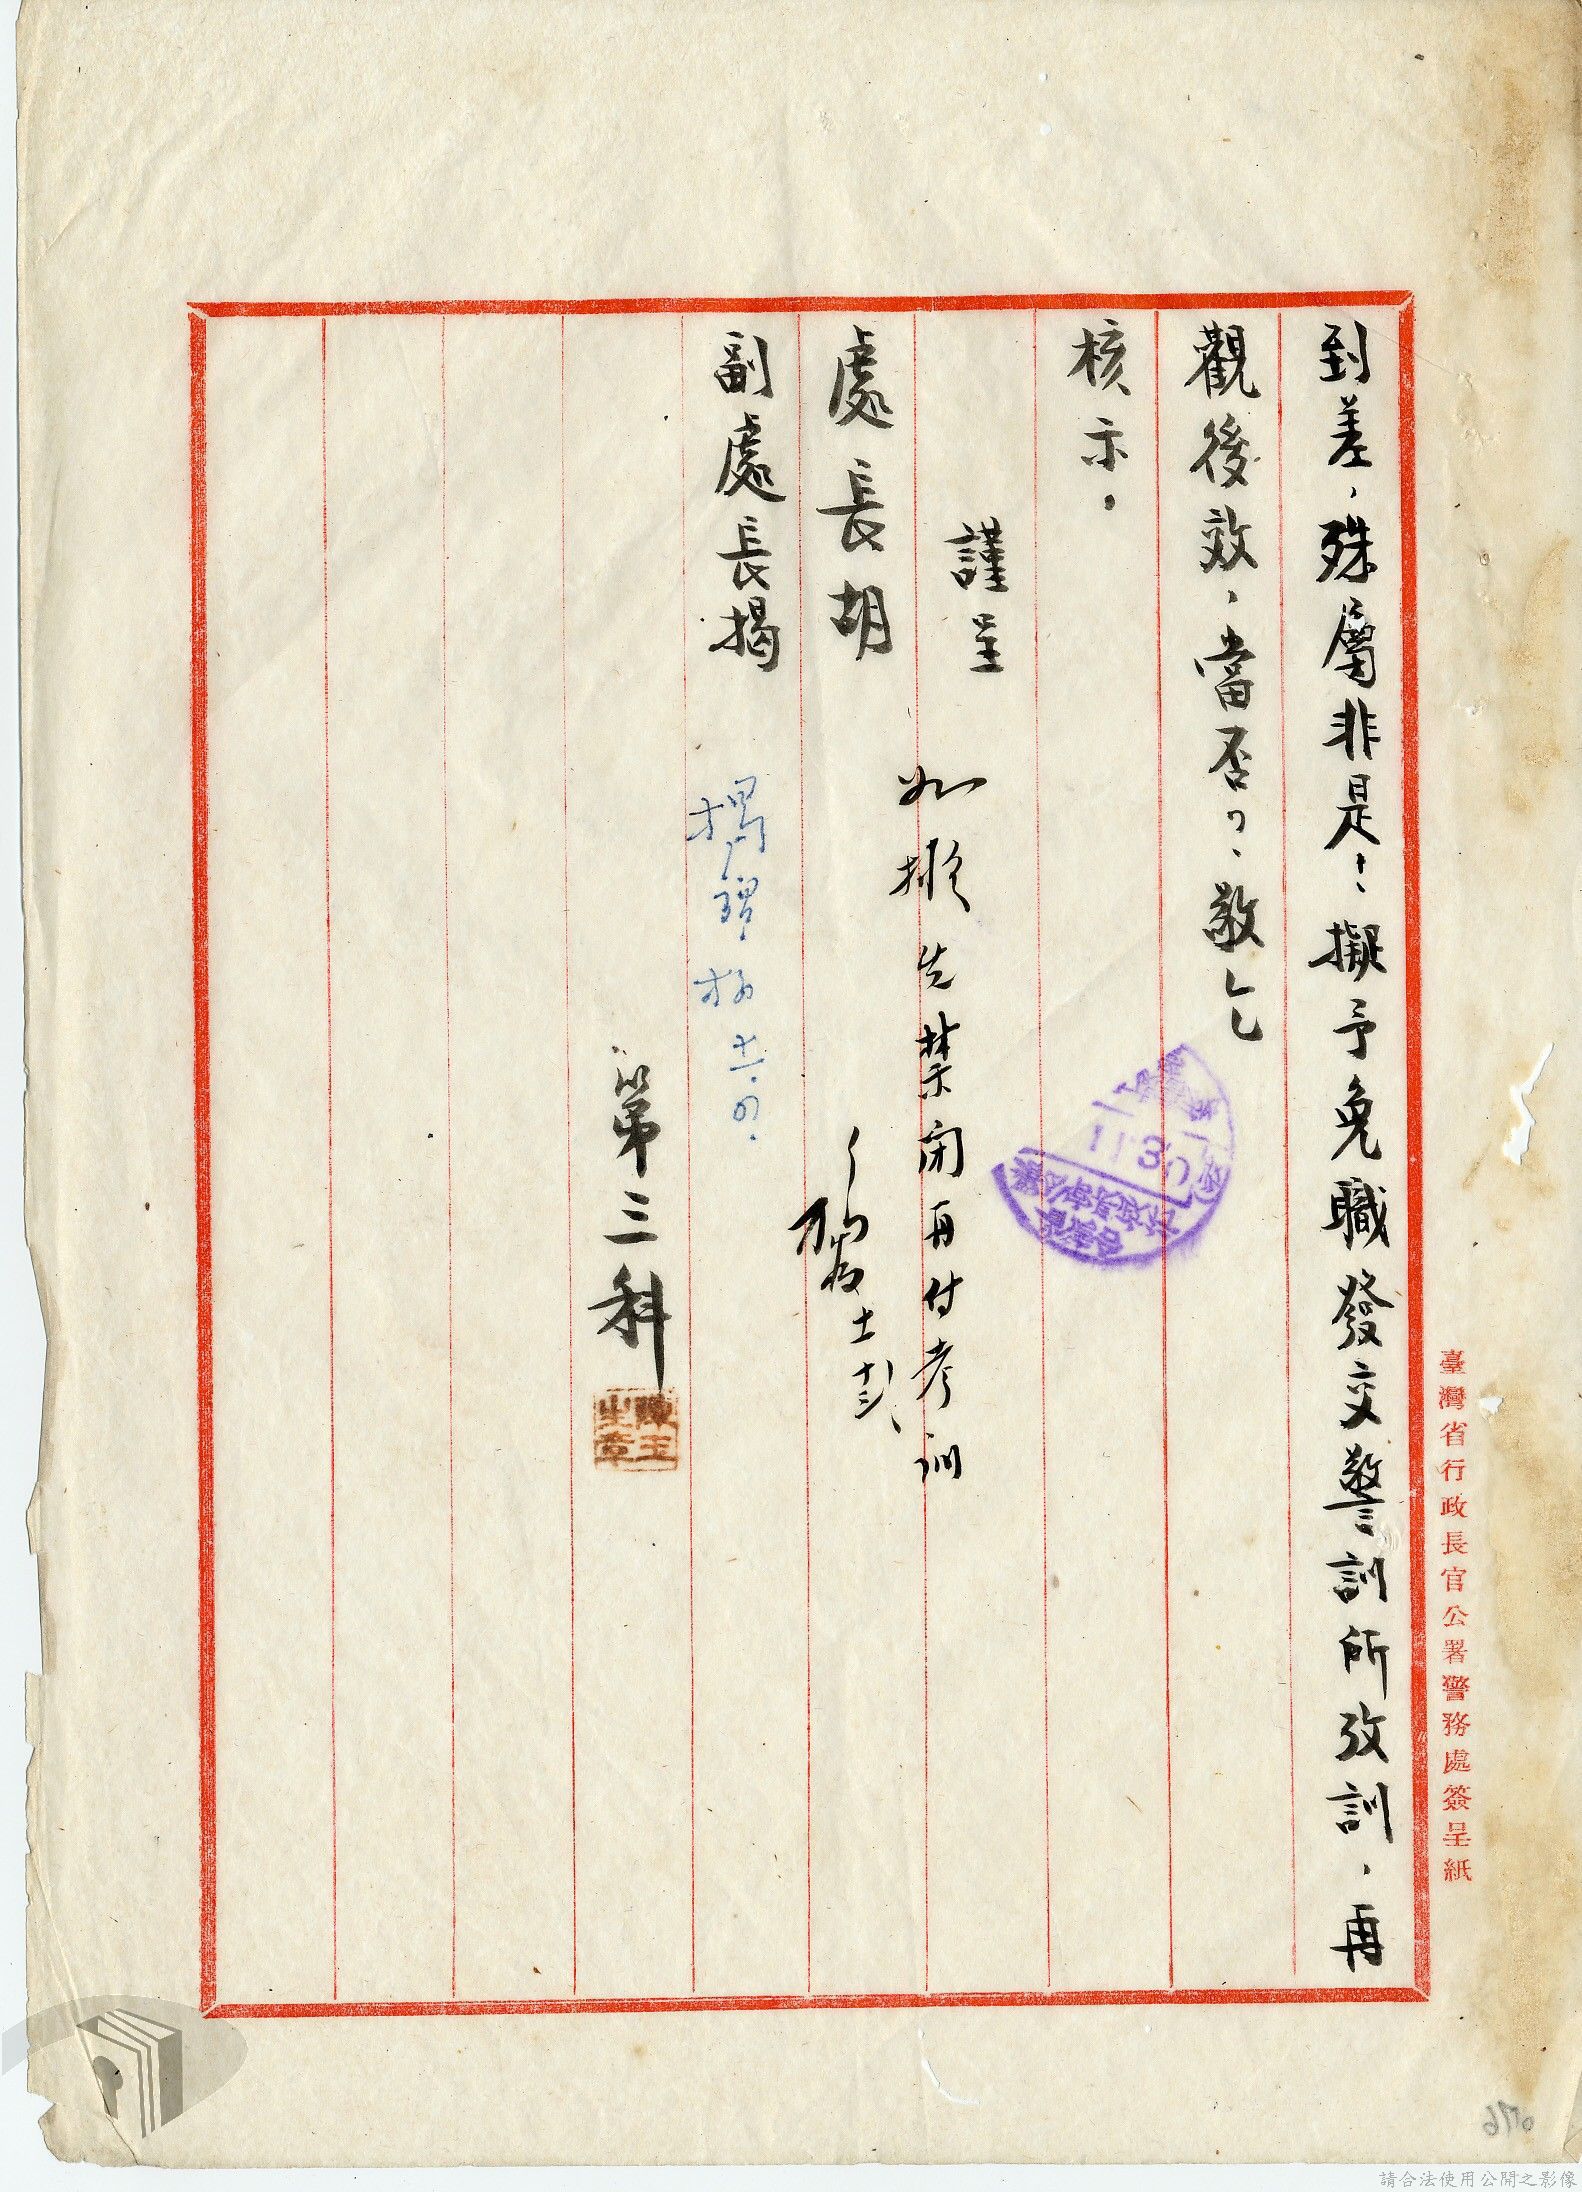 臺灣省行政長官公署警務處簽呈紙
到差，殊屬非是！擬予免職發交警訓所攷訓，再
觀後效，當否？敬乞
核示。
謹呈
處長胡
副處長揭
如擬先禁閉再付考訓
第三科
陳玉
生章
11 30
請合法使用公開之影像